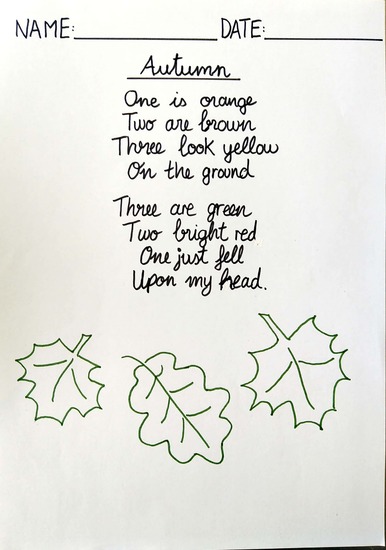 NAME: DATE:
Autumn
One is orange
Two are brown
Three look yellow
On the ground
Three are green
Two bright red
One just fell
Upon my head.